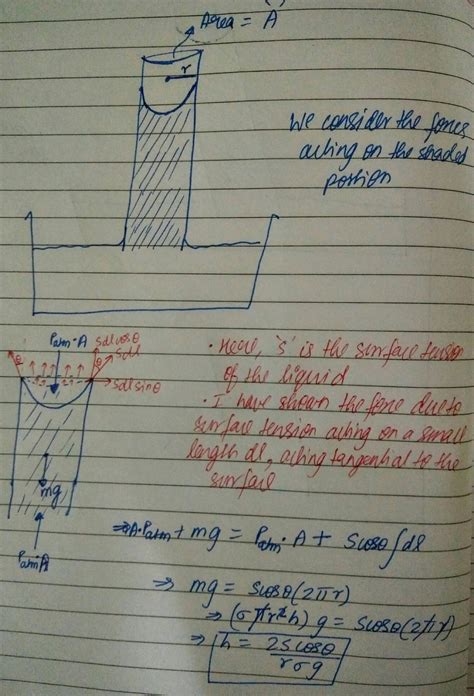 Area = A
r
We consider the forces
acting on the shaded
portion
Patm·A
sdlcosθ
sdl
θ
θ
sdlsinθ
mg
Patm·A
· Here, 's' is the surface tension
of the liquid
· I have shown the force due to
surface tension acting on a small
length dl, acting tangential to the
surface
⇒ A·Patm + mg = Patm·A + scosθ∫dl
⇒ mg = scosθ(2πr)
⇒ (σπr²h)g = scosθ(2πr)
⇒ h = 2scosθ
rσg